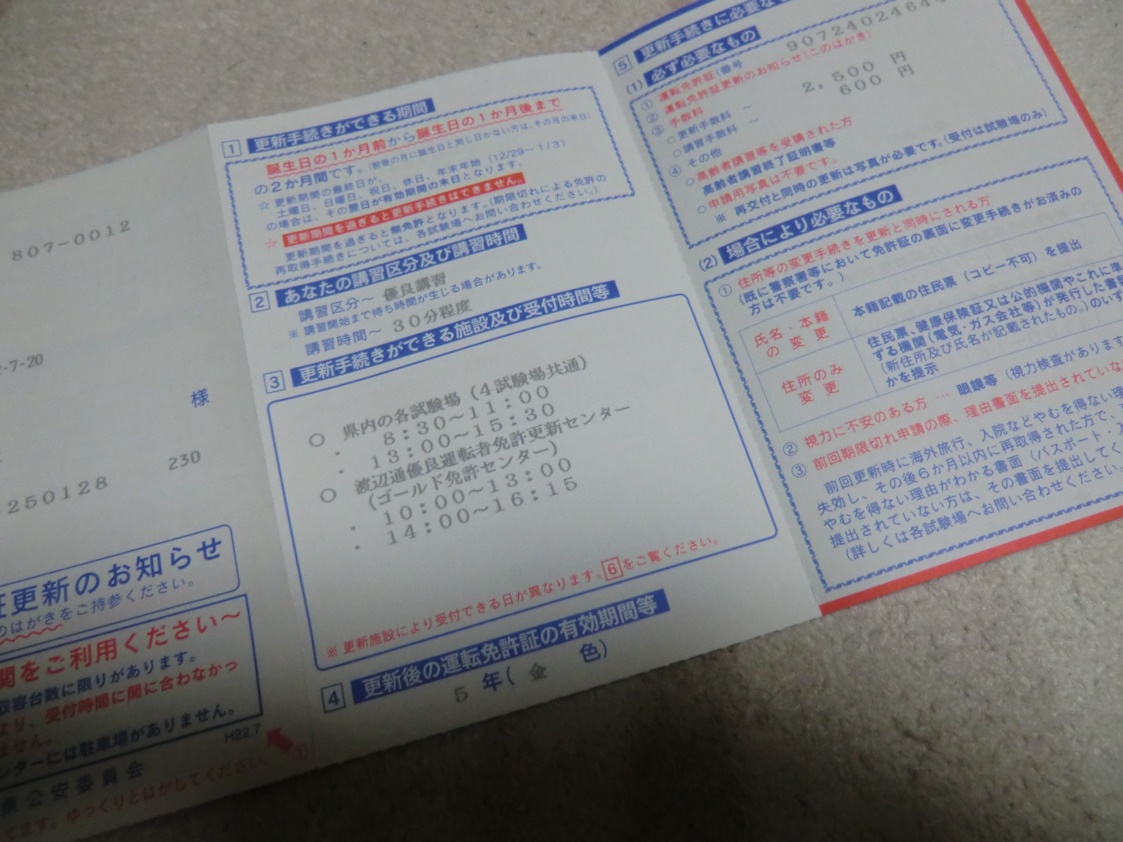 807-0012
-7-20
様
230
250128
証更新のお知らせ
のはがきをご持参ください。
関をご利用ください～
収容台数に限りがあります。
なり、受付時間に間に合わなかっ
ません。
ンターには駐車場がありません。
H22.7
県公安委員会
てます。ゆっくりとはがしてください。
1 更新手続きができる期間
誕生日の1か月前から誕生日の1か月後まで
の2か月間です。(前後の月に誕生日と同じ日がない方は、その月の末日)
☆ 更新期間の最終日が、
土曜日、日曜日、祝日、休日、年末年始(12/29～1/3)
の場合は、その翌日が有効期間の末日となります。
☆ 更新期間を過ぎると更新手続きはできません。
更新期間を過ぎると無免許となります。(期限切れによる免許の
再取得手続きについては、各試験場へお問い合わせください。)
2 あなたの講習区分及び講習時間
講習区分～ 優良講習
※ 講習開始まで待ち時間が生じる場合があります。
講習時間～ 30分程度
3 更新手続きができる施設及び受付時間等
○ 県内の各試験場(4試験場共通)
・ 8:30～11:00
・ 13:00～15:30
○ 渡辺通優良運転者免許更新センター
(ゴールド免許センター)
・ 10:00～13:00
・ 14:00～16:15
※ 更新施設により受付できる日が異なります。6をご覧ください。
4 更新後の運転免許証の有効期間等
5 年( 金 色)
5 更新手続きに必要な
(1) 必ず必要なもの
① 運転免許証(番号 90724024644
② 運転免許証更新のお知らせ(このはがき)
③ 手数料
○ 更新手数料 ～ 2,500 円
○ 講習手数料 ～ 600 円
④ その他
○ 高齢者講習等を受講された方
高齢者講習終了証明書等
○ 申請用写真は不要です。
※ 再交付と同時の更新は写真が必要です。(受付は試験場のみ)
(2) 場合により必要なもの
① 住所等の変更手続きを更新と同時にされる方
(既に警察署等において免許証の裏面に変更手続きがお済みの
方は不要です。)
氏名・本籍
の 変 更
本籍記載の住民票(コピー不可)を提出
住所のみ
変 更
住民票、健康保険証又は公的機関やこれに準
ずる機関(電気・ガス会社等)が発行した書類
(新住所及び氏名が記載されたもの。)のいず
かを提示
② 視力に不安のある方 … 眼鏡等(視力検査があります
③ 前回期限切れ申請の際、理由書面を提出されていな
前回更新時に海外旅行、入院などやむを得ない理
失効し、その後6か月以内に再取得された方で、
やむを得ない理由がわかる書面(パスポート、入
提出されていない方は、その書面を提出してく
(詳しくは各試験場へお問い合わせください。